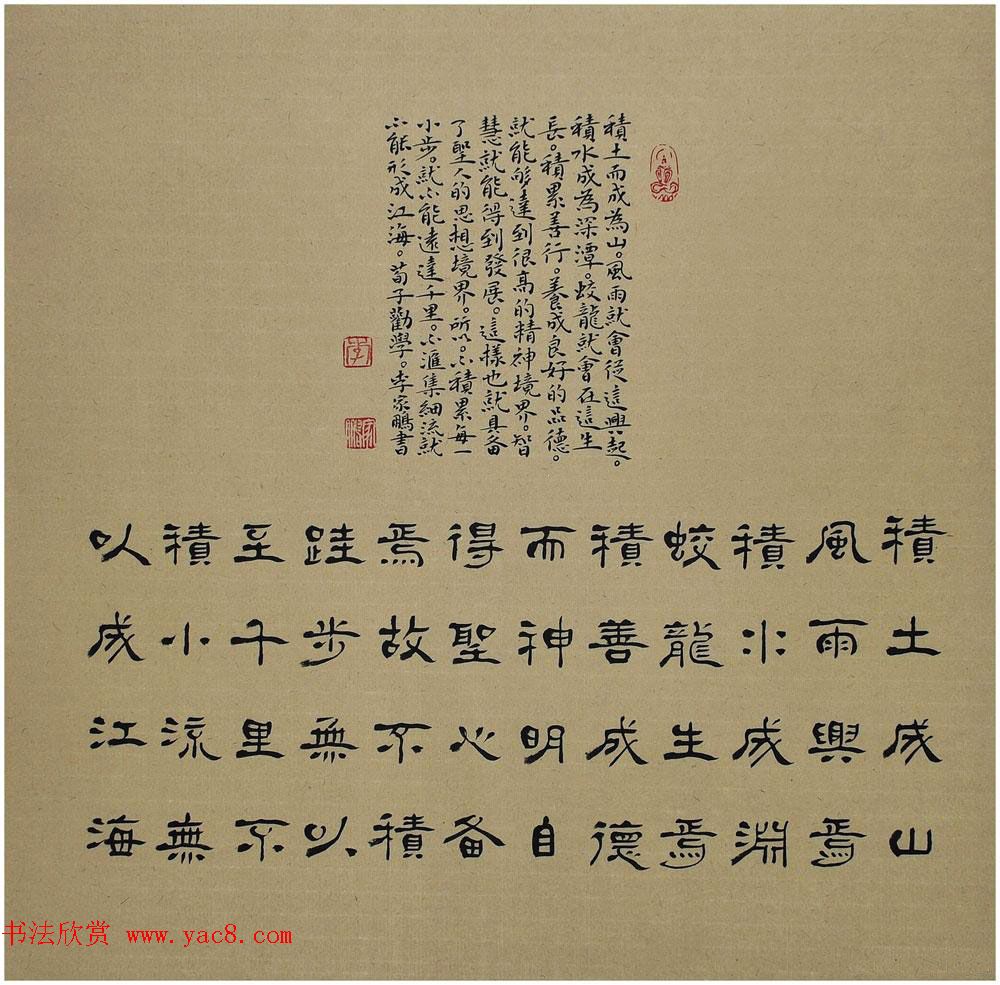 積土而成為山。風雨就會從這興起。
積水成為深潭。蛟龍就會在這生
長。積累善行。養成良好的品德。
就能够達到很高的精神境界。智
慧就能得到發展。這樣也就具备
了聖人的思想境界。所以。不積累每一
小步。就不能遠達千里。不滙集細流就
不能形成江海。荀子勸學。李家鵬書
積土成山
風雨興焉
積水成淵
蛟龍生焉
積善成德
而神明自
得聖心备
焉故不積
跬步無以
至千里不
積小流無
以成江海
书法欣赏 www.yac8.com